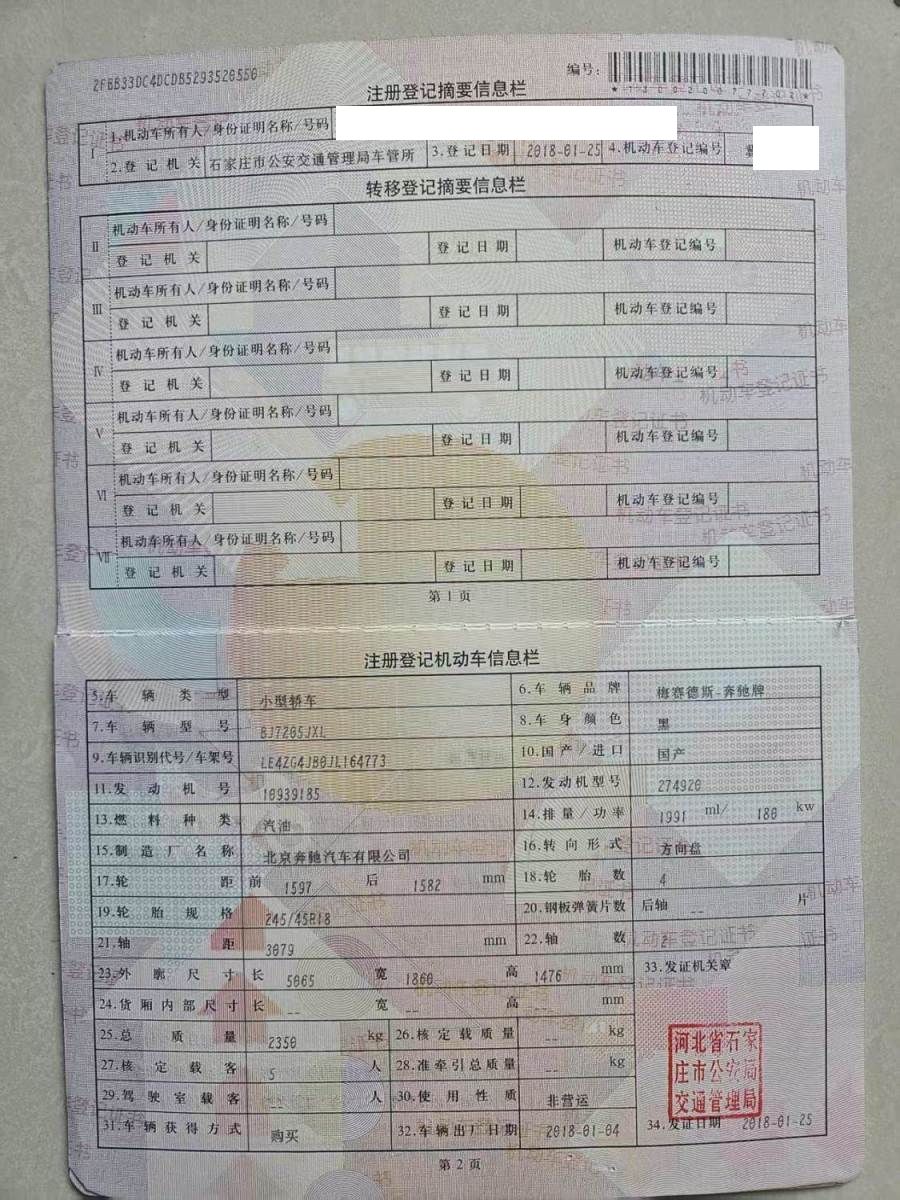 2FBB33DC4DCDB5293526550
编号：
*130020077202*
注册登记摘要信息栏
I 1.机动车所有人/身份证明名称/号码
2.登记机关 石家庄市公安交通管理局车管所 3.登记日期 2018-01-25 4.机动车登记编号 冀
转移登记摘要信息栏
II 机动车所有人/身份证明名称/号码
登记机关 登记日期 机动车登记编号
III 机动车所有人/身份证明名称/号码
登记机关 登记日期 机动车登记编号
IV 机动车所有人/身份证明名称/号码
登记机关 登记日期 机动车登记编号
V 机动车所有人/身份证明名称/号码
登记机关 登记日期 机动车登记编号
VI 机动车所有人/身份证明名称/号码
登记机关 登记日期 机动车登记编号
VII 机动车所有人/身份证明名称/号码
登记机关 登记日期 机动车登记编号
第1页
注册登记机动车信息栏
5.车辆类型 小型轿车 6.车辆品牌 梅赛德斯-奔驰牌
7.车辆型号 BJ7205JXL 8.车身颜色 黑
9.车辆识别代号/车架号 LE4ZG4JB0JL164773 10.国产/进口 国产
11.发动机号 10939185 12.发动机型号 274920
13.燃料种类 汽油 14.排量/功率 1991 ml/ 180 kw
15.制造厂名称 北京奔驰汽车有限公司 16.转向形式 方向盘
17.轮距 前 1597 后 1582 mm 18.轮胎数 4
19.轮胎规格 245/45R18 20.钢板弹簧片数 后轴 -- 片
21.轴距 3079 mm 22.轴数 2
23.外廓尺寸 长 5065 宽 1860 高 1476 mm 33.发证机关章
24.货厢内部尺寸 长 -- 宽 -- 高 -- mm
25.总质量 2350 kg 26.核定载质量 -- kg
27.核定载客 5 人 28.准牵引总质量 -- kg
29.驾驶室载客 -- 人 30.使用性质 非营运
河北省石家
庄市公安局
交通管理局
31.车辆获得方式 购买 32.车辆出厂日期 2018-01-04 34.发证日期 2018-01-25
第2页